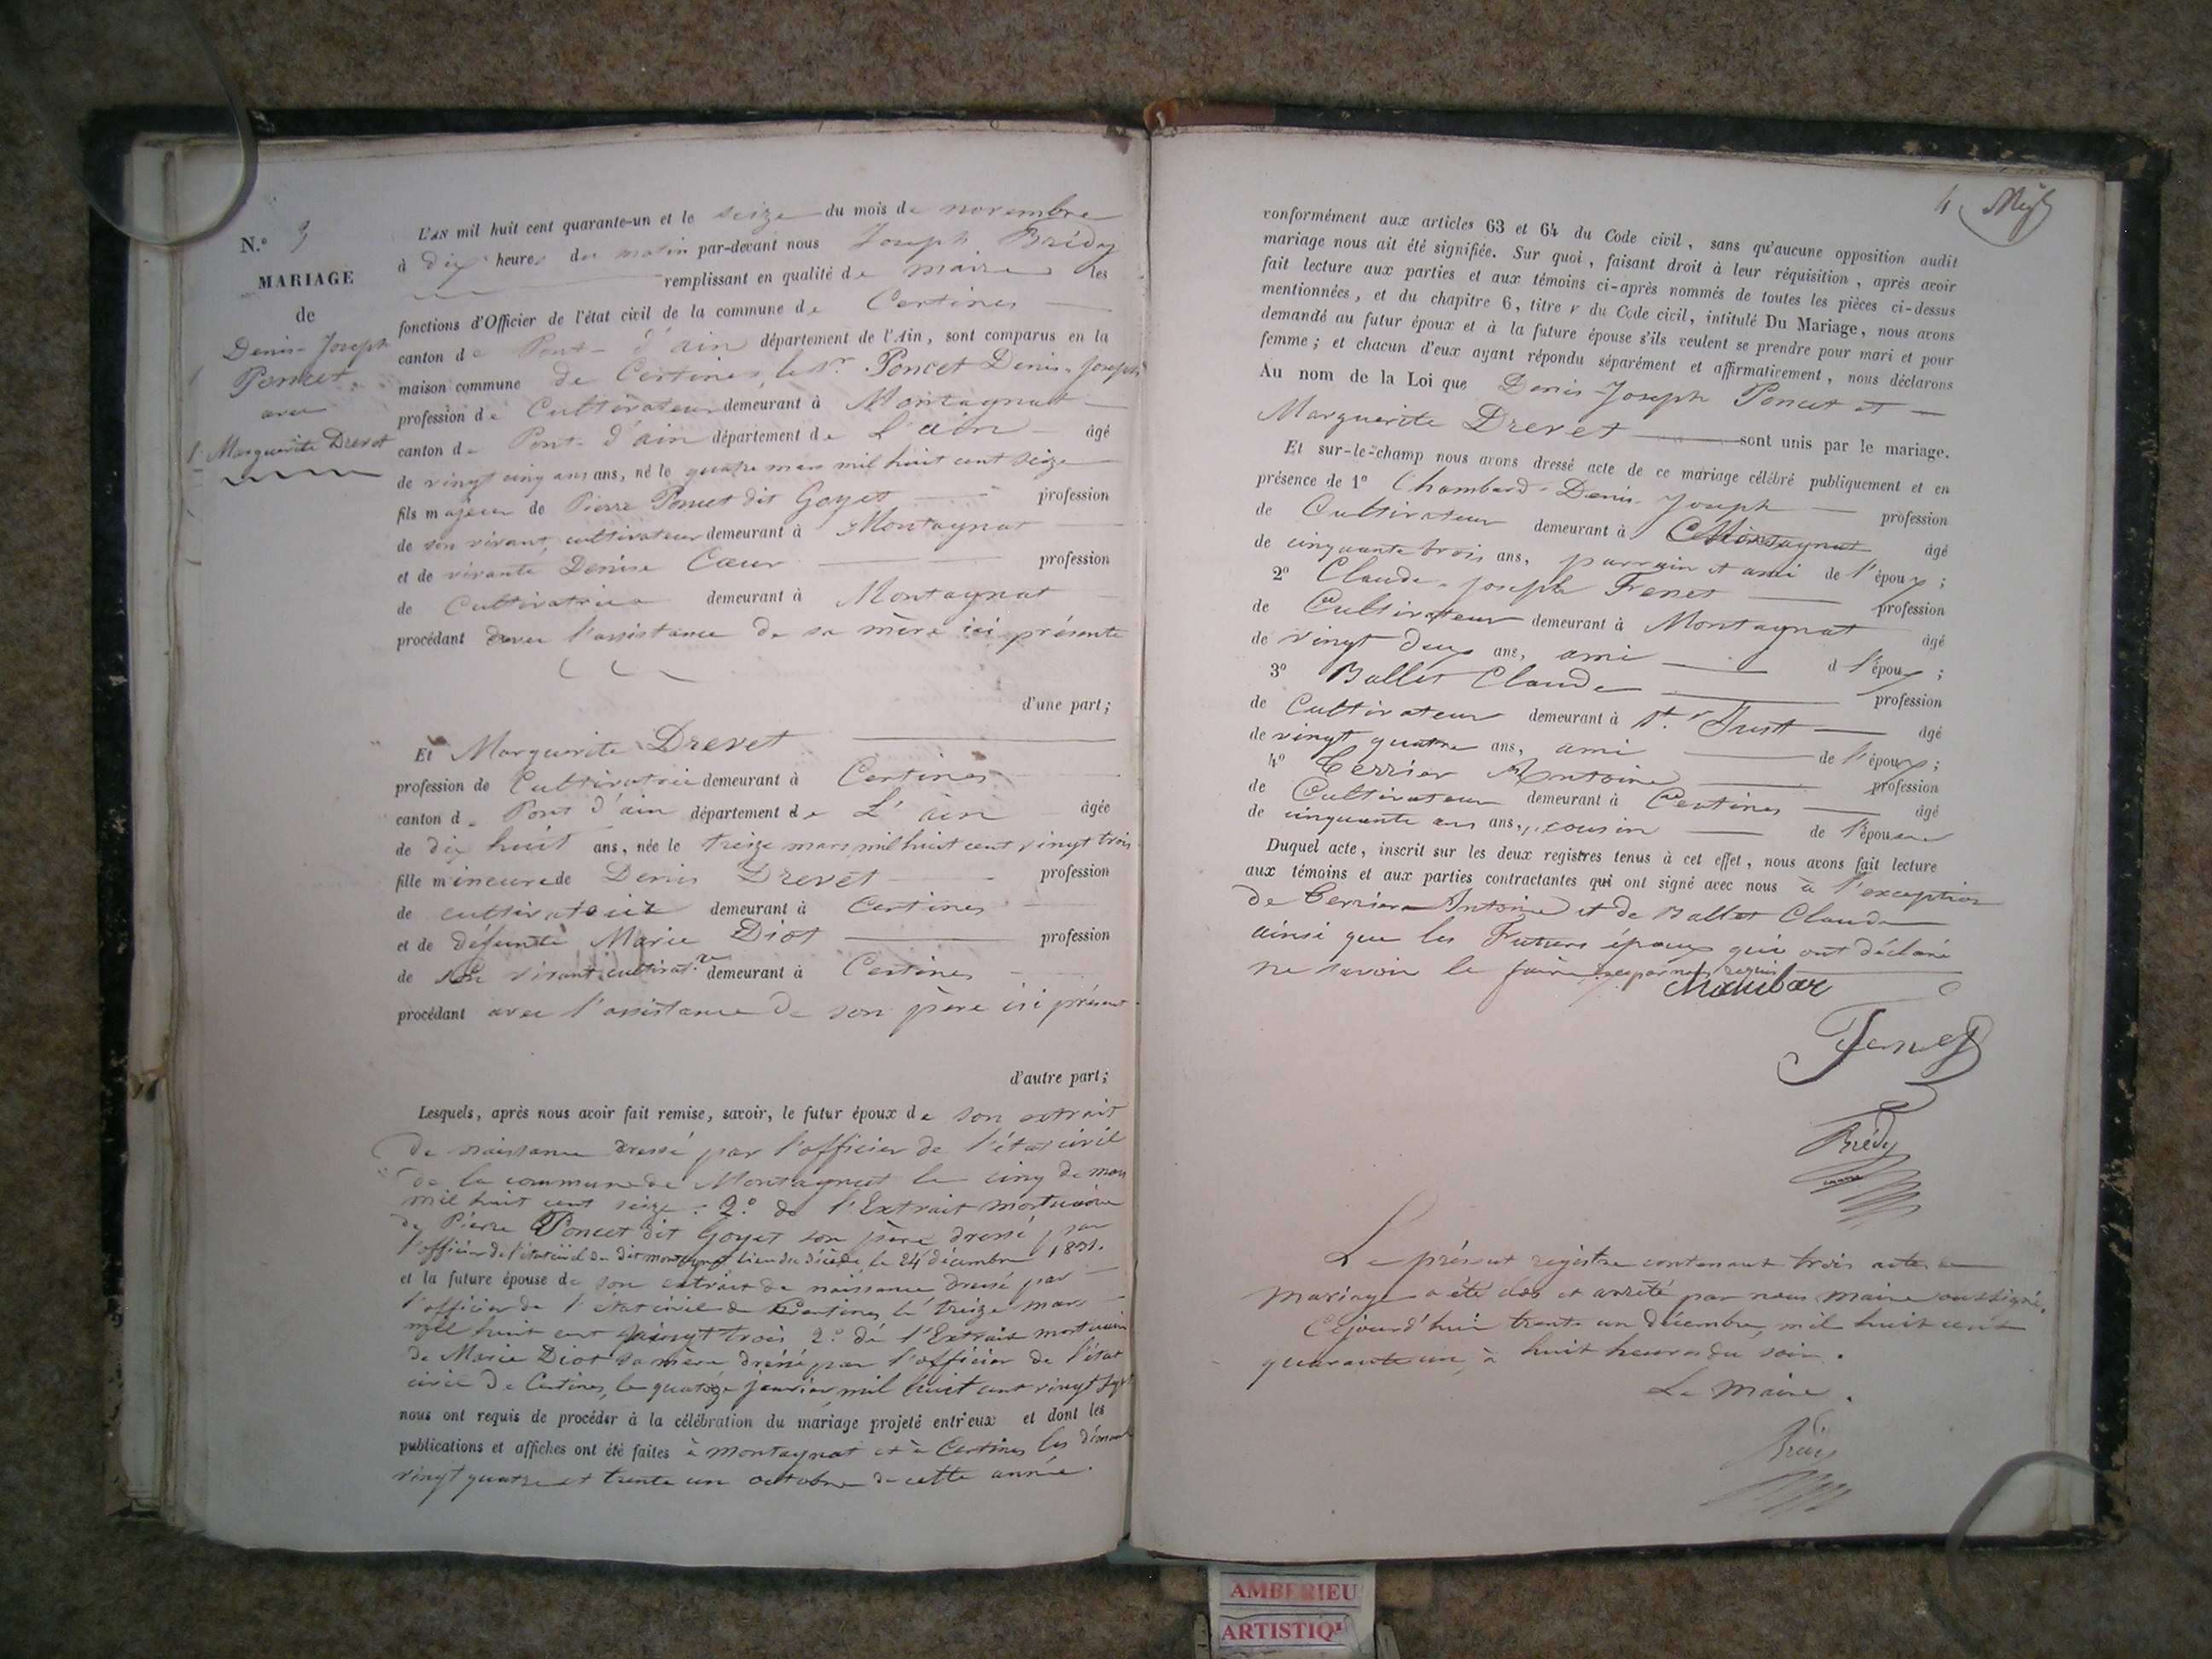 N.o 3
MARIAGE
de
Denis-Joseph
Poncet
avec
Marguerite Drevet
L'AN mil huit cent quarante-un et le seize du mois de novembre
à dix heures du matin par-devant nous Joseph Brédy
remplissant en qualité de maire les
fonctions d'Officier de l'état civil de la commune de Certines
canton de Pont-d'ain département de l'Ain, sont comparus en la
maison commune de Certines, le Sr. Poncet Denis-Joseph
profession de Cultivateur demeurant à Montagnat
canton de Pont-d'ain département de L'ain âgé
de vingt cinq ans ans, né le quatre mars mil huit cent seize
fils majeur de Pierre Poncet dit Goyet profession
de son vivant, cultivateur demeurant à Montagnat
et de vivante Denise Cœur profession
de Cultivatrice demeurant à Montagnat
procédant avec l'assistance de sa mère ici présente
d'une part;
Et Marguerite Drevet
profession de Cultivatrice demeurant à Certines
canton de Pont d'ain département de L'ain âgée
de dix huit ans, née le treize mars mil huit cent vingt trois
fille mineure de Denis Drevet profession
de cultivateur demeurant à Certines
et de défunte Marie Diot profession
de son vivant cultivat.ce demeurant à Certines
procédant avec l'assistance de son père ici présent
d'autre part;
Lesquels, après nous avoir fait remise, savoir, le futur époux de son extrait
de naissance dressé par l'officier de l'état civil
de la commune de Montagnat le cinq de mars
mil huit cent seize. 2.o de l'Extrait mortuaire
de Pierre Poncet dit Goyet son père dressé par
l'officier de l'état civil du dit montagnat lieu du décès, le 24 décembre 1831.
et la future épouse de son extrait de naissance dressé par
l'officier de l'état civil de Certines le treize mars
mil huit cent vingt trois 2.o de l'Extrait mortuaire
de Marie Diot sa mère dressé par l'officier de l'état
civil de Certines, le janvier mil huit cent vingt sept
nous ont requis de procéder à la célébration du mariage projeté entr'eux et dont les
publications et affiches ont été faites à montagnat et à Certines les dimanches
vingt quatre et trente un octobre de cette année.
4
conformément aux articles 63 et 64 du Code civil, sans qu'aucune opposition audit
mariage nous ait été signifiée. Sur quoi, faisant droit à leur réquisition, après avoir
fait lecture aux parties et aux témoins ci-après nommés de toutes les pièces ci-dessus
mentionnées, et du chapitre 6, titre v du Code civil, intitulé Du Mariage, nous avons
demandé au futur époux et à la future épouse s'ils veulent se prendre pour mari et pour
femme; et chacun d'eux ayant répondu séparément et affirmativement, nous déclarons
Au nom de la Loi que Denis-Joseph Poncet et
Marguerite Drevet sont unis par le mariage.
Et sur-le-champ nous avons dressé acte de ce mariage célébré publiquement et en
présence de 1o Chambard-Denis-Joseph profession
de Cultivateur demeurant à Montagnat âgé
de cinquante trois ans, parrain et ami de l'époux;
2o Claude-Joseph Frenet profession
de Cultivateur demeurant à Montagnat âgé
de vingt deux ans, ami d l'époux;
3o Ballet Claude profession
de Cultivateur demeurant à St. Just âgé
de vingt quatre ans, ami de l'époux;
4o Cerrier Antoine profession
de Cultivateur demeurant à Certines âgé
de cinquante ans ans, cousin de l'épouse
Duquel acte, inscrit sur les deux registres tenus à cet effet, nous avons fait lecture
aux témoins et aux parties contractantes qui ont signé avec nous à l'exception
de Cerrier Antoine et de Ballet Claude
ainsi que les Futurs époux qui ont déclaré
ne savoir le faire de ce par nous requis
Brédy
maire
Le présent registre contenant trois actes de
mariage a été clos et arrêté par nous maire soussigné,
Cejourd'hui trente un décembre, mil huit cent
quarante un, à huit heures du soir.
Le Maire.
Brédy
AMBERIEU
ARTISTIQU